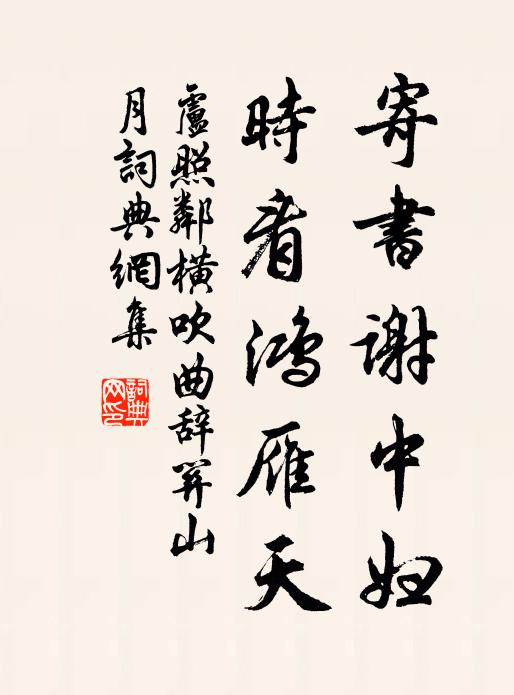 寄書謝中婦
時看鴻雁天
盧照鄰橫吹曲辭關山
月詞典網集
詞典
网印